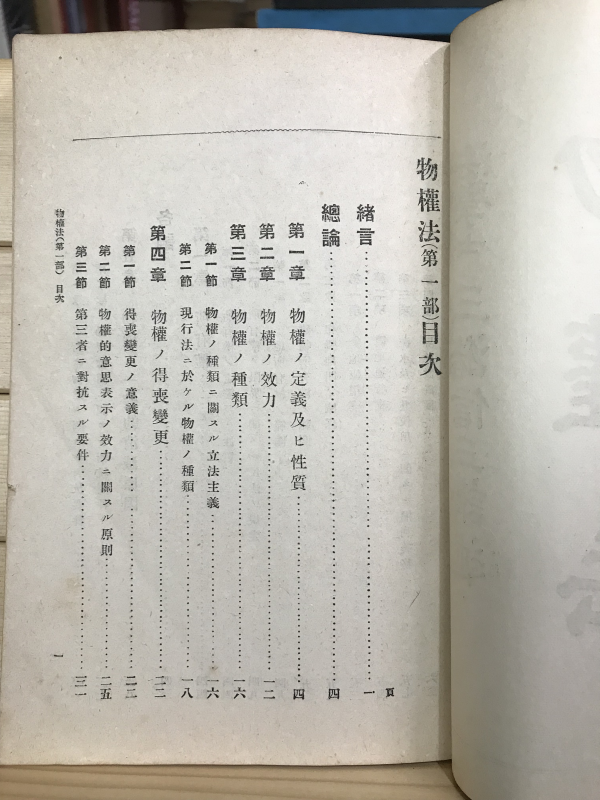 物權法(第一部)目次
頁
緒言 一
總論 四
第一章 物權ノ定義及ヒ性質 四
第二章 物權ノ效力 一二
第三章 物權ノ種類 一六
第一節 物權ノ種類ニ關スル立法主義 一六
第二節 現行法ニ於ケル物權ノ種類 一八
第四章 物權ノ得喪變更 二二
第一節 得喪變更ノ意義 二二
第二節 物權的意思表示ノ效力ニ關スル原則 二五
第三節 第三者ニ對抗スル要件 三一
物權法(第一部) 目次
一